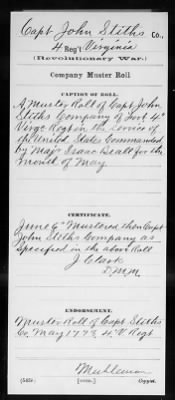 Capt John Stiths Co.,
4 Reg't Virginia
(Revolutionary War.)
Company Muster Roll
CAPTION OF ROLL.
A Muster Roll of Capt John
Stiths Company of Foot 4th
Virga Regt in the service of
the United States Commanded
by Majr Isaac Beall for the
month of May
CERTIFICATE.
June 6th Mustered then Capt
John Stiths Company as
specified in the above Roll
J Clark
D.M.M.
ENDORSEMENT.
Muster Roll of Capt Stiths
Co. May 1778 4 V Regt
Copyist.